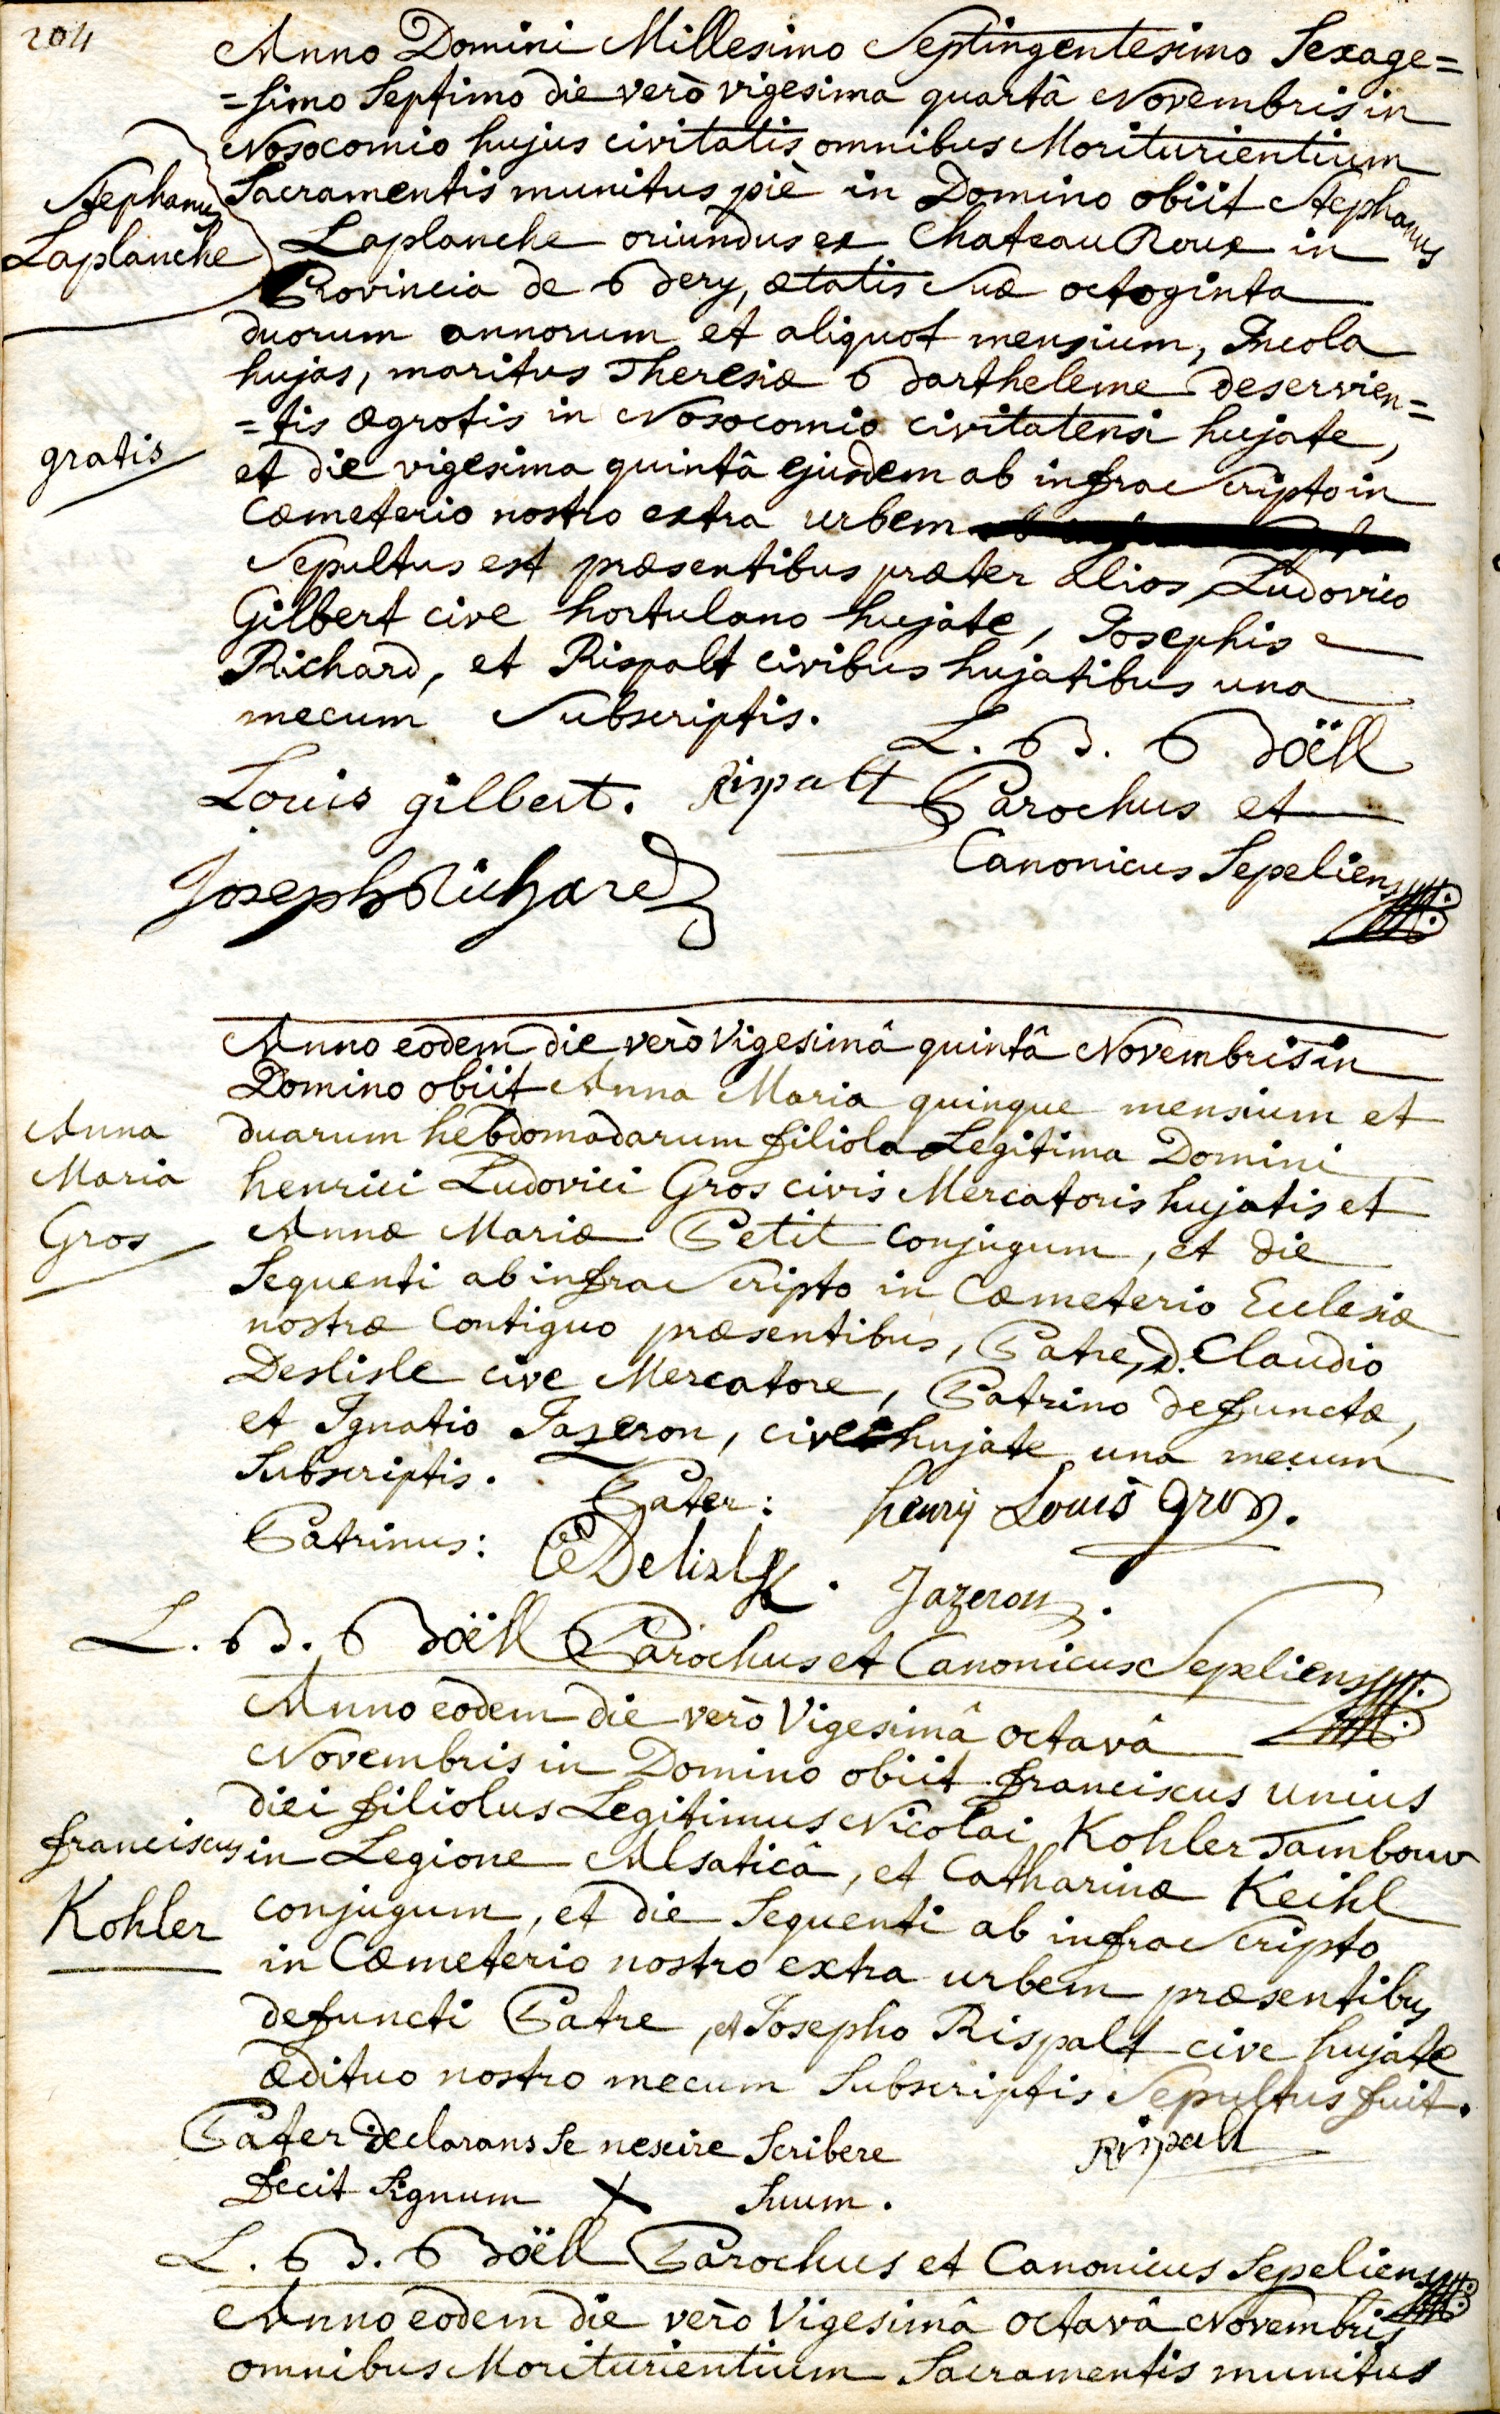 204
Anno Domini Millesimo Septingentesimo Sexage=
=simo Septimo die verò vigesima quartâ Novembris in
Nosocomio hujus civitatis omnibus Moriturientium
Sacramentis munitus piè in Domino obiit Stephanus
Stephanus
Laplanche
Laplanche oriundus ex Chateau Roux in
Provincia de Bery, ætatis suæ octoginta
duorum annorum et aliquot mensium, Incola
hujas, maritus Theresiæ Bartheleme deservien=
=tis ægrotis in Nosocomio civitatensi hujate,
gratis
et die vigesima quintâ ejusdem ab infra scripto in
Cæmeterio nostro extra urbem
Sepultus est præsentibus præter alios, Ludovico
Gilbert cive hortulano hujate, Josephis
Richard, et Rispalt civibus hujatibus una
mecum Subscriptis.
L. B. Boëll
Louis gilbert. Rispalt Parochus et
Canonicus Sepeliens
Joseph Richard
Anno eodem die verò Vigesimâ quintâ Novembris in
Domino obiit Anna Maria quinque mensium et
Anna
Maria
Gros
duarum hebdomadarum filiola Legitima Domini
henrici Ludovici Gros civis Mercatoris hujatis et
Annæ Mariæ Petit conjugum, et die
Sequenti ab infra scripto in Cæmeterio Ecclesiæ
nostræ Contiguo præsentibus, Patre, D. Claudio
Deslisle cive Mercatore, Patrino defunctæ,
et Ignatio Jazeron, cive hujate una mecum
Subscriptis. Pater: henrÿ Louis gros.
Patrinus: C Delisle. Jazeron.
L. B. Boëll Parochus et Canonicus Sepeliens
Anno eodem die verò Vigesimâ octavâ
Novembris in Domino obiit franciscus unius
diei filiolus Legitimus Nicolai Kohler Tambour
franciscus
Kohler
in Legione Alsaticâ, et Catharinæ Keihl
conjugum, et die Sequenti ab infra scripto
in Cæmeterio nostro extra urbem præsentibus
defuncti Patre, et Josepho Rispalt cive hujate
ædituo nostro mecum Subscriptis Sepultus fuit.
Pater declarans se nescire Scribere Rispalt
Fecit Signum X Suum.
L. B. Boëll Parochus et Canonicus Sepeliens
Anno eodem die verò Vigesimâ octavâ Novembris
omnibus Moriturientium Sacramentis munitus